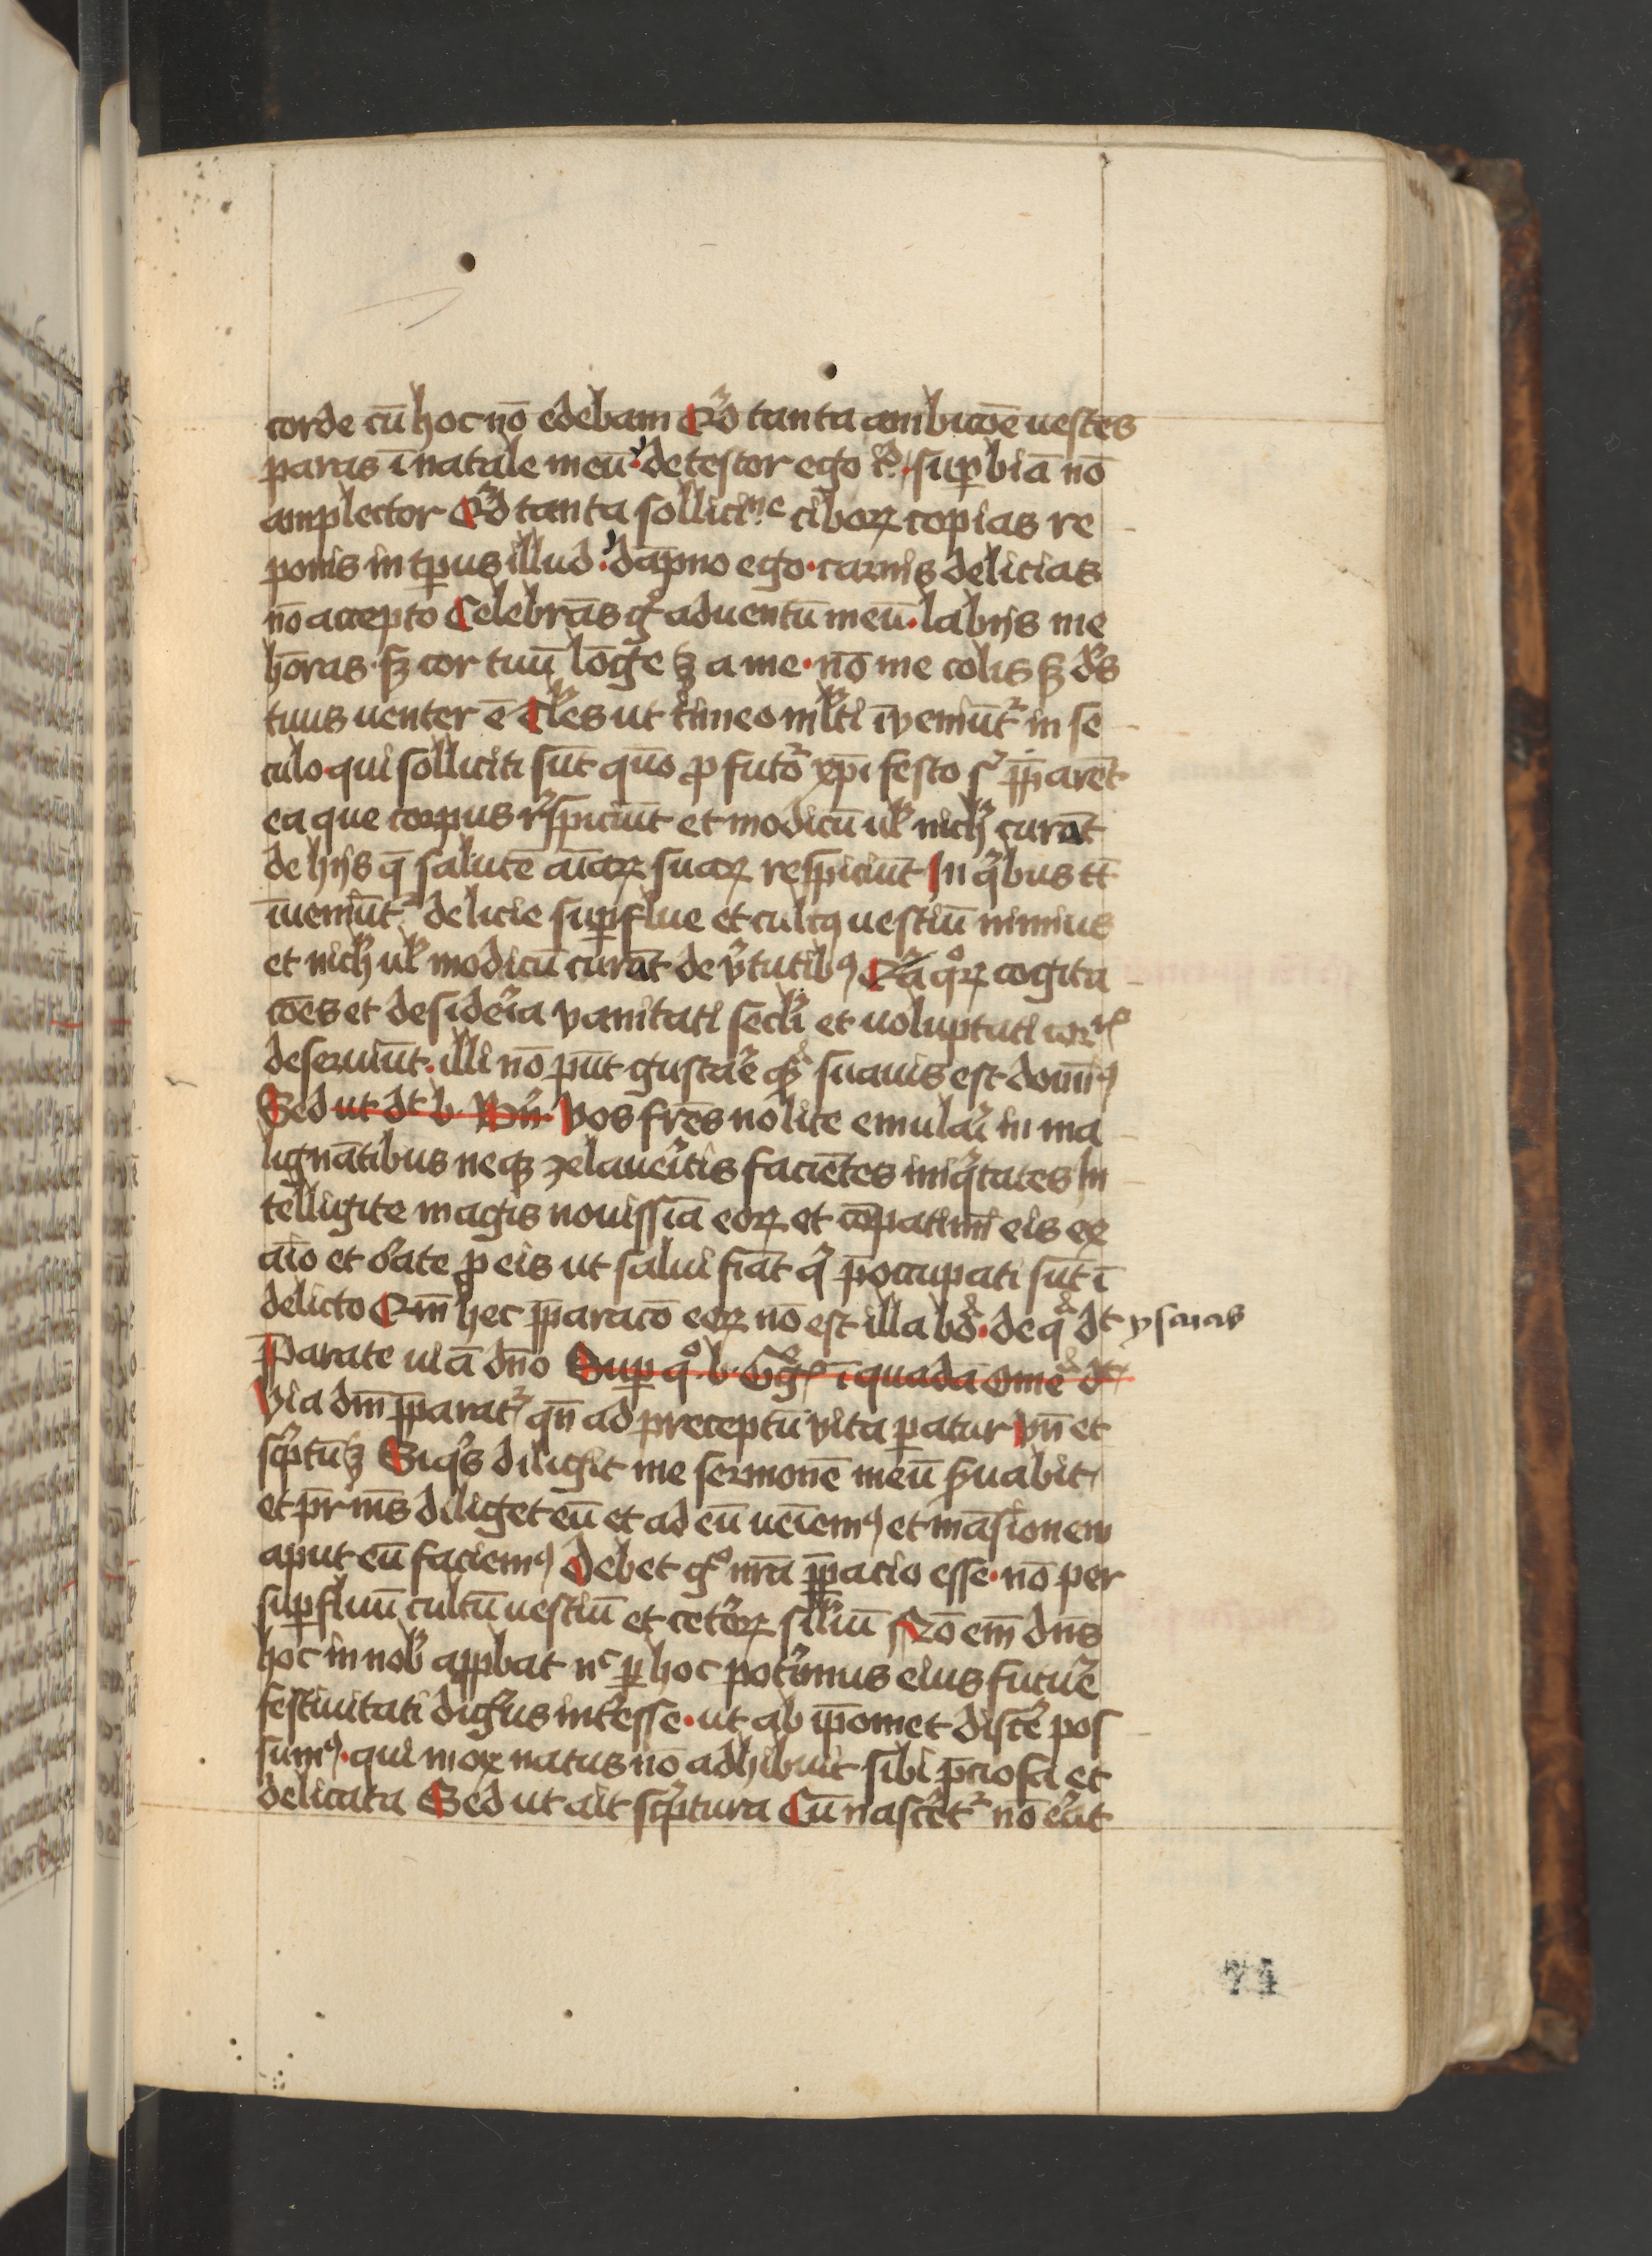 corde cū hoc nō edebam Qͥd tanta ambicōe uestes
paras ī natale meū· detestor ego · sup̱biā nō
amplector Qͥd tanta sollicitͫͤ ciboꝝ copias re
ponis in tp̱us illud· dāpno ego· carnis delicias
nō accepto Celebrās gͦ aduentū meū· labijs me
hōras· sꝫ cor tuū lōge ꝫ a me· nō me colis sꝫ dꝰs
tuus uenter ē Tˡes ut timeo mˡti īueniūtᷣ in se
culo· qui solliciti sūt quō ꝓ futᵒ xp̄i festo sᷣ p̄parēt
ea que corpus rᷤspiciūt et modicū ul̓ nich̓ curāt
de hijs q̄ salutē aīaꝝ suaꝝ respiciūt In qͥbus tt̄
īueniūtᷣ delicie sup̱flue et cultꝫ uestiū nimius
et nich̓ ul̓ modicū curāt de v̓tutibꝰ Qͣ qͦꝝ cogita
cōes et desidēia vanitati secl̓i et uoluptati corꝑͥˢ
deseruiūt· illi nō pn̄t gustāe qͣ suauis est dominꝰ
Sed ut dt b Bn̄ Vos frēs nolite emulāi in ma
lignātibus neqꝫ zelauēitis faciētes iniqͥtates In
telligite magis nouissīa eoꝝ et cōpatimī eis ex
aīo et ōate ꝓ eis ut salui fiāt qͥ p̄occupati sūt ī
delicto Qm̄ hec p̄paracō eoꝝ nō est illa · de qͣ dt ysaias
Parate uiā dn̄o Sup̱ qͦ b Gͤgͥ ī quadā Omē dt
Via dm̄ p̄paratᷣ qn̄ ad preceptū vita p̱atur Vn̄ et
scͥptū ꝫ Siqͥs diligit me sermonē meū s̓uabit
et pr̄ mͫs diliget eū et ad eū ueīemꝰ et māsionem
aput eū faciemꝰ Debet gͦ nr̄a p̄p̱atio esse· nō per
sup̱fluū cultū uestiū et cetōꝝ sil̓iū Nō em̄ dn̄s
hoc in nob̓ app̱bat nͨ p̱ hoc pot̓imus eius futuē
festiuitati dig̓ius int̓esse· ut ab ip̄omet disc̓e pos
sumꝰ· qui mox natus nō adhibuit sibi p̄ciosa et
delicata Sed ut ait scͥptura Cū nasc̓etᷣ nō ēat
74